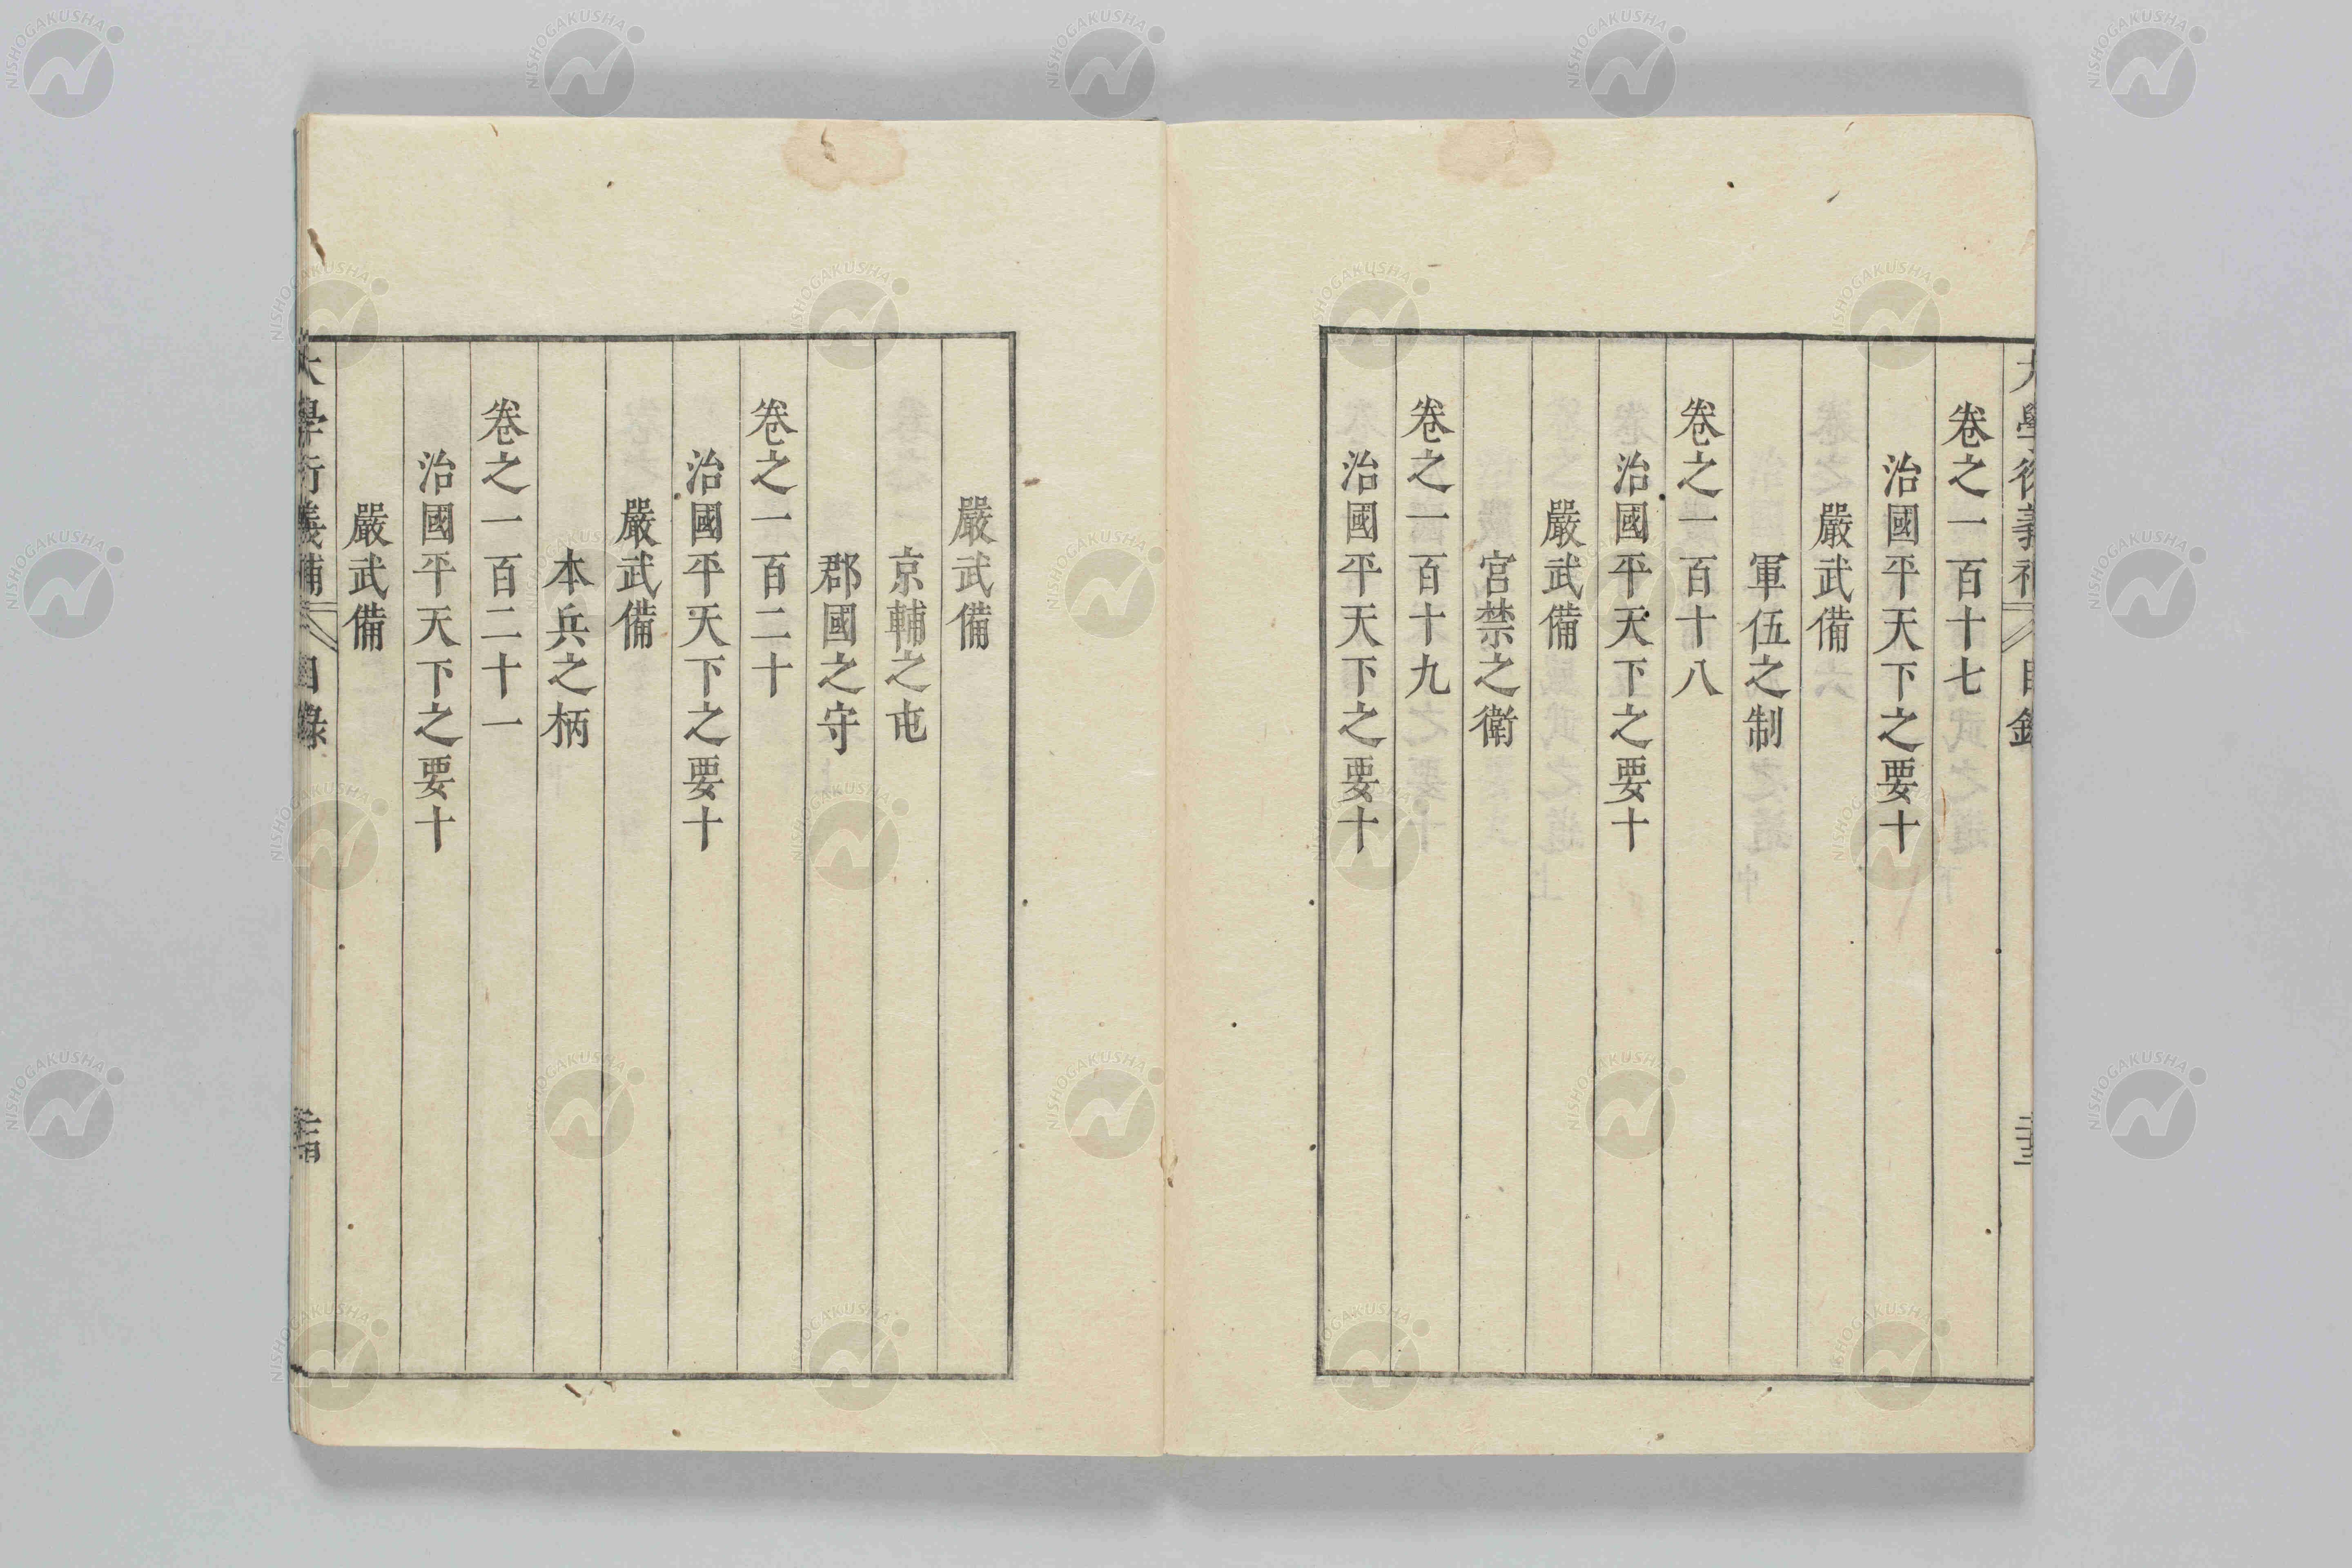 卷之一百十七
治國平天下之要十
嚴武備
軍伍之制
卷之一百十八
治國平天下之要十
嚴武備
宮禁之衛
卷之一百十九
治國平天下之要十
嚴武備
京輔之屯
郡國之守
卷之一百二十
治國平天下之要十
嚴武備
本兵之柄
卷之一百二十一
治國平天下之要十
嚴武備
大學衍義補 目錄
NISHOGAKUSHA